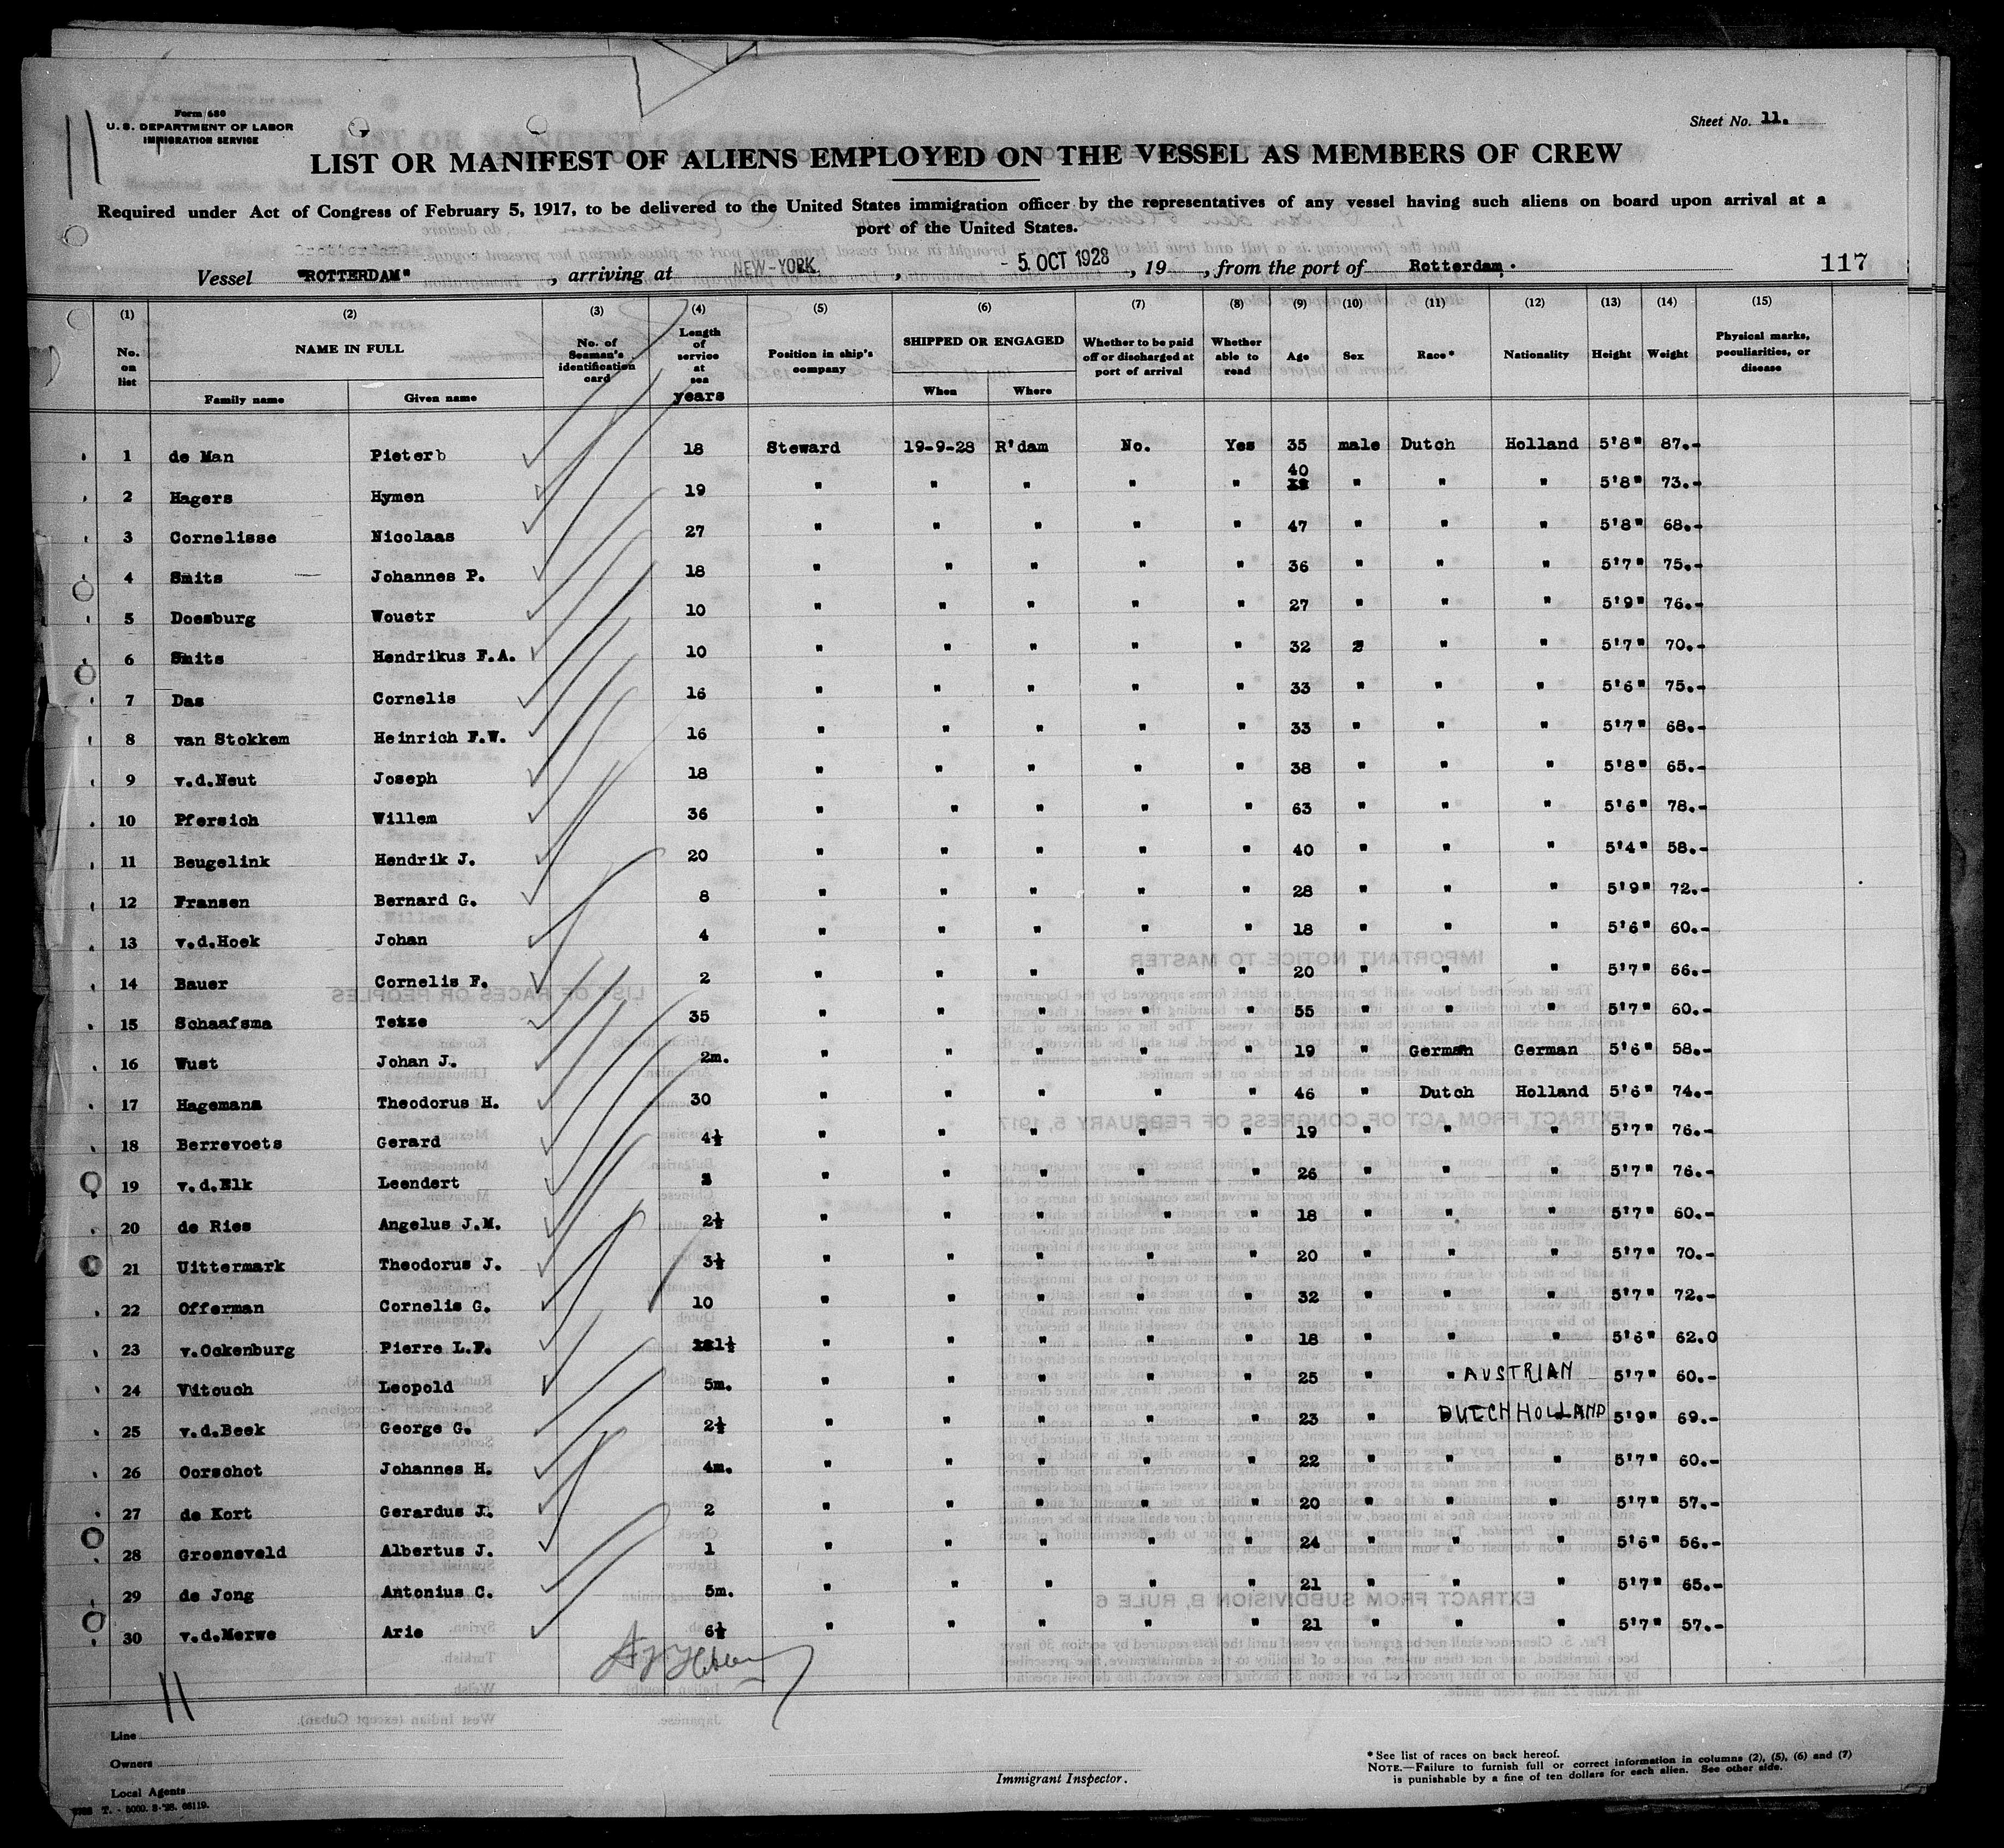 Form 680
U. S. DEPARTMENT OF LABOR
IMMIGRATION SERVICE
Sheet No. 11.
LIST OR MANIFEST OF ALIENS EMPLOYED ON THE VESSEL AS MEMBERS OF CREW
Required under Act of Congress of February 5, 1917, to be delivered to the United States immigration officer by the representatives of any vessel having such aliens on board upon arrival at a
port of the United States.
Vessel "ROTTERDAM", arriving at NEW-YORK, - 5. OCT 1928, 19 , from the port of Rotterdam. 117
(1) (2) (3) (4) (5) (6) (7) (8) (9) (10) (11) (12) (13) (14) (15)
No. on list NAME IN FULL Family name Given name No. of Seaman's identification card Length of service at sea years Position in ship's company SHIPPED OR ENGAGED When Where Whether to be paid off or discharged at port of arrival Whether able to read Age Sex Race* Nationality Height Weight Physical marks, peculiarities, or disease
1 de Man Pieter b 18 Steward 19-9-28 R'dam No. Yes 35 male Dutch Holland 5'8" 87.-
2 Hagers Hymen 19 " " " " " 40 " " " 5'8" 73.-
3 Cornelisse Nicolaas 27 " " " " " 47 " " " 5'8" 68.-
4 Smits Johannes P. 18 " " " " " 36 " " " 5'7" 75.-
5 Doesburg Wouetr 10 " " " " " 27 " " " 5'9" 76.-
6 Smits Hendrikus F.A. 10 " " " " " 32 " " " 5'7" 70.-
7 Das Cornelis 16 " " " " " 33 " " " 5'6" 75.-
8 van Stokkem Heinrich F.W. 16 " " " " " 33 " " " 5'7" 68.-
9 v.d.Neut Joseph 18 " " " " " 38 " " " 5'8" 65.-
10 Pfersich Willem 36 " " " " " 63 " " " 5'6" 78.-
11 Beugelink Hendrik J. 20 " " " " " 40 " " " 5'4" 58.-
12 Fransen Bernard G. 8 " " " " " 28 " " " 5'9" 72.-
13 v.d.Hoek Johan 4 " " " " " 18 " " " 5'6" 60.-
14 Bauer Cornelis F. 2 " " " " " 20 " " " 5'7" 66.-
15 Schaafsma Tetze 35 " " " " " 55 " " " 5'7" 60.-
16 Wust Johan J. 2m. " " " " " 19 " German German 5'6" 58.-
17 Hagemans Theodorus H. 30 " " " " " 46 " Dutch Holland 5'6" 74.-
18 Berrevoets Gerard 4½ " " " " " 19 " " " 5'7" 76.-
19 v.d.Elk Leendert " " " " " 26 " " " 5'7" 76.-
20 de Ries Angelus J.M. 2½ " " " " " 18 " " " 5'7" 60.-
21 Uittermark Theodorus J. 3½ " " " " " 20 " " " 5'7" 70.-
22 Offerman Cornelis G. 10 " " " " " 32 " " " 5'7" 72.-
23 v.Ockenburg Pierre L.F. 1½ " " " " " 18 " " " 5'6" 62.0
24 Vitouch Leopold 5m. " " " " " 25 " " AUSTRIAN 5'7" 60.-
25 v.d.Beek George G. 2½ " " " " " 23 " DUTCH HOLLAND 5'9" 69.-
26 Oorschot Johannes H. 4m. " " " " " 22 " " " 5'7" 60.-
27 de Kort Gerardus J. 2 " " " " " 20 " " " 5'7" 57.-
28 Groeneveld Albertus J. 1 " " " " " 24 " " " 5'6" 56.-
29 de Jong Antonius C. 5m. " " " " " 21 " " " 5'7" 65.-
30 v.d.Merwe Arie 6½ " " " " " 21 " " " 5'7" 57.-
11
Line
Owners
Local Agents
Immigrant Inspector.
* See list of races on back hereof.
NOTE.—Failure to furnish full or correct information in columns (2), (5), (6) and (7)
is punishable by a fine of ten dollars for each alien. See other side.
T. - 5000. 3-'28. 66119.